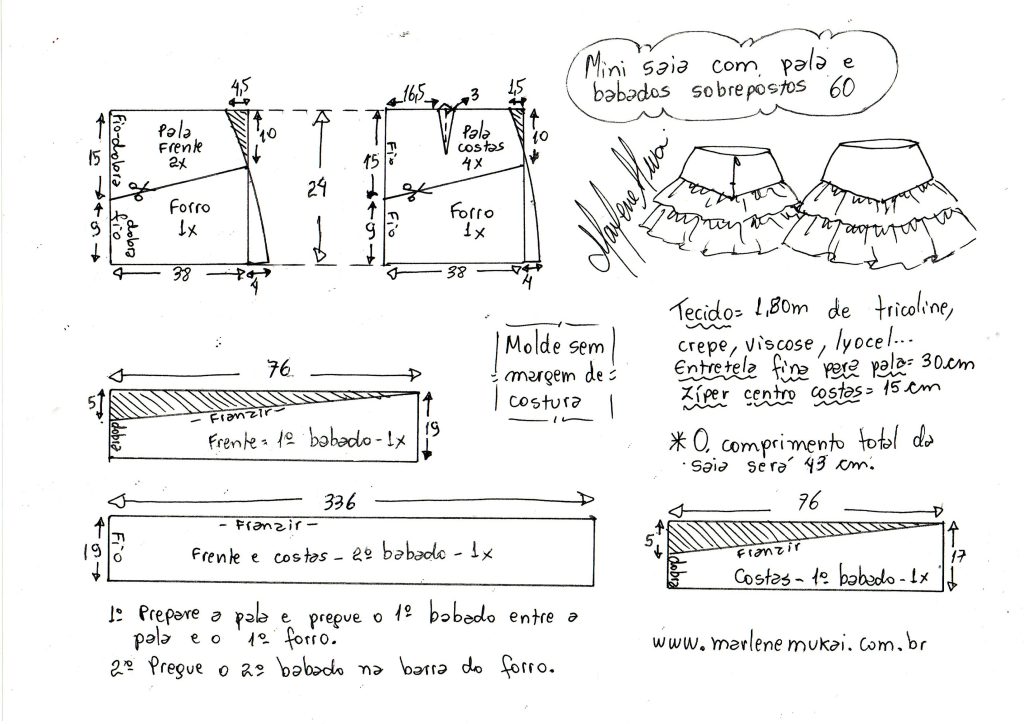 Mini saia com pala e
babados sobrepostos 60
Marlene Mukai
4,5
10
15
9
Fio-dobra
Pala
Frente
2x
dobra
fio
Forro
1x
38
4
24
16,5
3
1,5
10
15
9
Fio
Pala
costas
4x
Fio
Forro
1x
38
4
Molde sem
margem de
costura
Tecido = 1,80m de tricoline,
crepe, viscose, lyocel...
Entretela fina para pala = 30 cm
Zíper centro costas = 15 cm
* O comprimento total da
saia será 43 cm.
76
5
dobra
- Franzir -
Frente = 1º babado - 1x
19
336
- Franzir -
19
Fio
Frente e costas - 2º babado - 1x
76
5
dobra
Franzir
Costas - 1º babado - 1x
17
1º Prepare a pala e pregue o 1º babado entre a
pala e o 1º forro.
2º Pregue o 2º babado na barra do forro.
www.marlenemukai.com.br